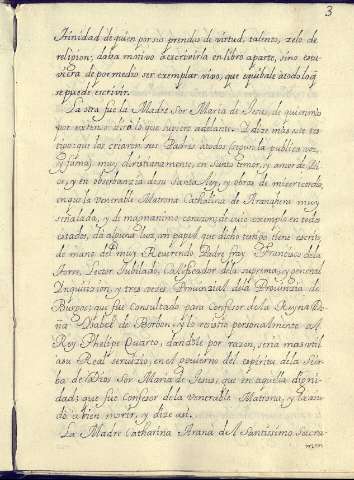 3
trinidad de quien por sus prendas de virtud, talento, zelo de
religion, daba motivo à escrivirla en libro aparte, sino estu
viera de por medio ser exemplar vivo, que equibale à todo lo q
se puede escrivir.
La otra fue la Madre Sor Maria de Jesus, de quien no
por extenso dirà lo que huviere adelante. Y dize más este
que las criaron sus Padres à todos (segun la publica voz,
y fama) muy christianamente, en santo temor, y amor de Di
os, y en observanzia de su Santa Ley, y obras de misericordia,
en que la Venerable Matrona Catharina de Arana fue muy
señalada, y de magnanimo corazon, de cuio exemplo en todos
estados, da alguna luz, un papel que dicho tengo escrito
de mano del muy Reverendo Padre fray Francisco de la
Torre, Lector Jubilado, Calificador de la suprema, y general
Inquisizion, y tres vezes Provinzial de la Provinzia de
Burgos; que fue Consultado para Confesor de la Reyna Do
ña Isabel de Borbon, y lo resistio personalmente al
Rey Phelipe Quarto, dandole por razon, seria mas util
a su Real servizio, en el govierno del espiritu de la Sier
ba de Dios Sor Maria de Jesus, que en aquella digni
dad; que fue Confesor de la Venerable Matrona, y la aiu
dò à bien morir, y dize asi.
La Madre Catharina Arana del Santissimo Sacra
men